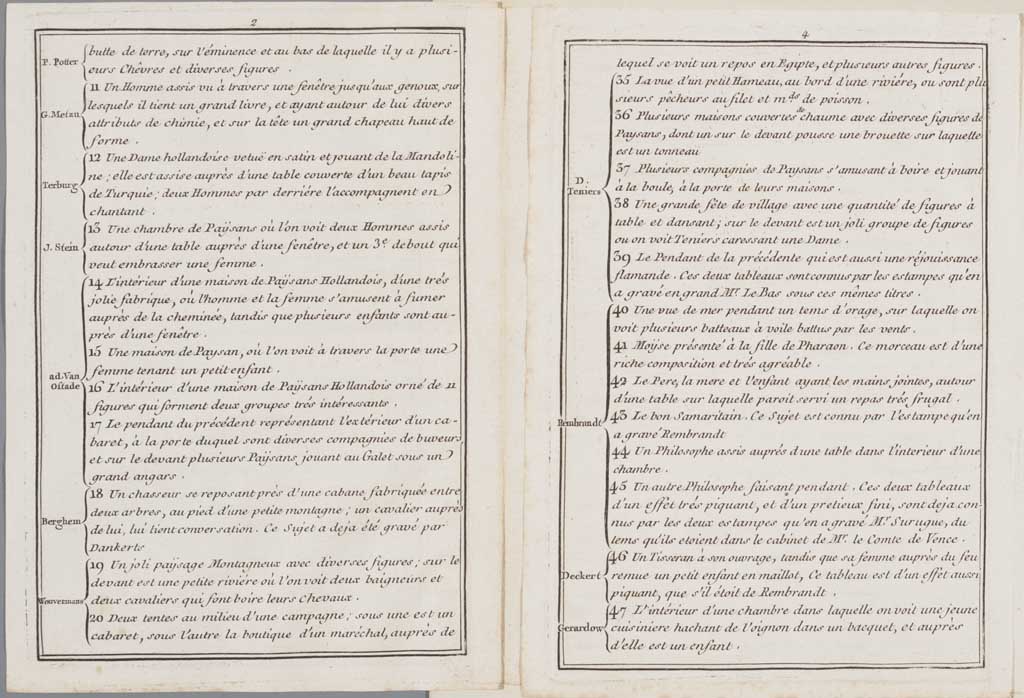 2
P. Potter
butte de terre, sur l'éminence et au bas de laquelle il y a plusi-
eurs Chêvres et diverses figures .
G. Metzu
11 Un Homme assis vu à travers une fenêtre jusqu'aux genoux, sur
lesquels il tient un grand livre, et ayant autour de lui divers
attributs de chimie, et sur la tête un grand chapeau haut de
forme .
Terburg
12 Une Dame hollandoise vetuë en satin et jouant de la Mandoli-
ne ; elle est assise auprès d'une table couverte d'un beau tapis
de Turquie ; deux Hommes par derriére l'accompagnent en
chantant .
J. Stein
13 Une chambre de Païsans où l'on voit deux Hommes assis
autour d'une table auprès d'une fenêtre, et un 3e debout qui
veut embrasser une femme .
ad. Van
Ostade
14 L'intérieur d'une maison de Païsans Hollandois, d'une trés
jolie fabrique, où l'homme et la femme s'amusent à fumer
auprès de la cheminée, tandis que plusieurs enfants sont au-
près d'une fenêtre .
15 Une maison de Paysan, où l'on voit à travers la porte une
femme tenant un petit enfant .
16 L'intérieur d'une maison de Païsans Hollandois orné de 11
figures qui forment deux groupes trés intéressants .
17 Le pendant du précédent représentant l'extérieur d'un ca-
baret, à la porte duquel sont diverses compagnies de buveurs,
et sur le devant plusieurs Païsans jouant au Galet sous un
grand angars .
Berghem
18 Un chasseur se reposant prés d'une cabane fabriquée entre
deux arbres, au pied d'une petite montagne ; un cavalier auprès
de lui, lui tient conversation . Ce Sujet a deja été gravé par
Dankerts
Wouvermans
19 Un joli païsage Montagneux avec diverses figures ; sur le
devant est une petite riviére où l'on voit deux baigneurs et
deux cavaliers qui font boire leurs Chevaux .
20 Deux tentes au milieu d'une campagne ; sous une est un
cabaret, sous l'autre la boutique d'un maréchal, auprès de
4
lequel se voit un repos en Egipte, et plusieurs autres figures .
D.
Teniers
35 La vue d'un petit Hameau, au bord d'une riviére, ou sont plu
sieurs pêcheurs au filet et mds de poisson .
36 Plusieurs maisons couvertes de chaume avec diverses figures de
Paysans, dont un sur le devant pousse une brouette sur laquelle
est un tonneau
37 Plusieurs compagnies de Paysans s'amusant à boire et jouant
à la boule, à la porte de leurs maisons .
38 Une grande fête de village avec une quantité de figures à
table et dansant ; sur le devant est un joli groupe de figures
ou on voit Teniers caressant une Dame .
39 Le Pendant de la précédente qui est aussi une réjouissance
flamande . Ces deux tableaux sont connus par les estampes qu'en
a gravé en grand Mr. Le Bas sous ces mêmes titres .
Rembrandt
40 Une vue de mer pendant un tems d'orage, sur laquelle on
voit plusieurs batteaux à voile battus par les vents .
41 Moÿse présenté à la fille de Pharaon . Ce morceau est d'une
riche composition et trés agréable .
42 Le Pere, la mere et l'enfant ayant les mains jointes, autour
d'une table sur laquelle paroit servi un repas trés frugal .
43 Le bon Samaritain . Ce Sujet est connu par l'estampe qu'en
a gravé Rembrandt
44 Un Philosophe assis auprès d'une table dans l'interieur d'une
chambre .
45 Un autre Philosophe faisant pendant . Ces deux tableaux
d'un effet trés piquant, et d'un pretieux fini, sont deja con-
nus par les deux estampes qu'en a gravé Mr. Surugue, du
tems qu'ils etoient dans le cabinet de Mr. le Comte de Vence .
Deckert
46 Un Tisseran à son ouvrage, tandis que sa femme auprès du feu
remue un petit enfant en maillot, Ce tableau est d'un effet aussi
piquant, que s'il étoit de Rembrandt .
Gerardow
47 L'intérieur d'une chambre dans laquelle on voit une jeune
cuisiniere hachant de l'oignon dans un bacquet, et auprès
d'elle est un enfant .